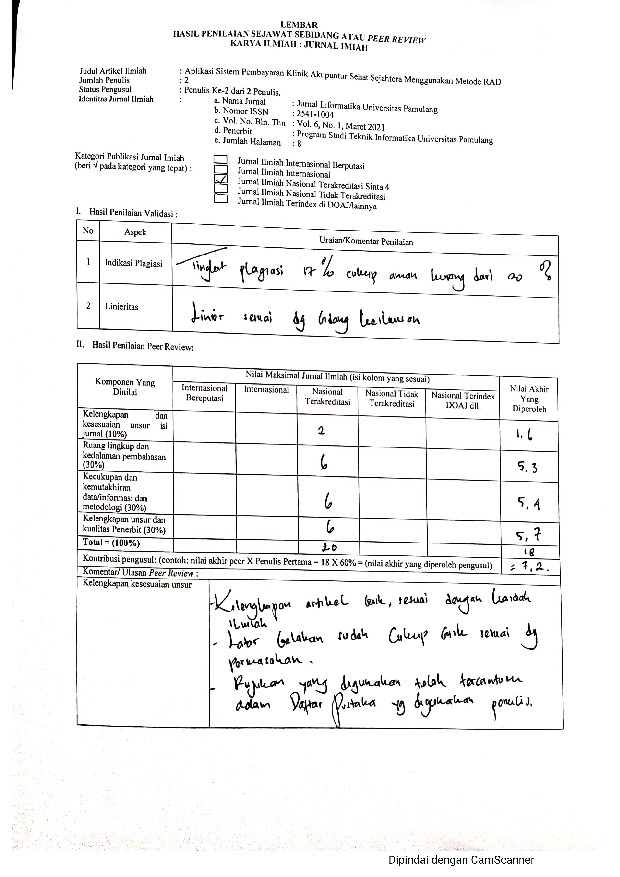 LEMBAR
HASIL PENILAIAN SEJAWAT SEBIDANG ATAU PEER REVIEW
KARYA ILMIAH : JURNAL IMIAH
Judul Artikel Ilmiah : Aplikasi Sistem Pembayaran Klinik Akupuntur Sehat Sejahtera Menggunakan Metode RAD
Jumlah Penulis : 2
Status Pengusul : Penulis Ke-2 dari 2 Penulis,
Identitas Jurnal Ilmiah :
a. Nama Jurnal : Jurnal Informatika Universitas Pamulang
b. Nomor ISSN : 2541-1004
c. Vol. No. Bln. Thn : Vol. 6, No. 1, Maret 2021
d. Penerbit : Program Studi Teknik Informatika Universitas Pamulang
e. Jumlah Halaman : 8
Kategori Publikasi Jurnal Imiah
(beri √ pada kategori yang tepat) :
Jurnal Ilmiah Internasional Berputasi
Jurnal Ilmiah Internasional
√ Jurnal Ilmiah Nasional Terakreditasi Sinta 4
Jurnal Ilmiah Nasional Tidak Terakreditasi
Jurnal Ilmiah Terindex di DOAJ/lainnya
I. Hasil Penilaian Validasi :
No Aspek Uraian/Komentar Penilaian
1 Indikasi Plagiasi Tingkat plagiasi 17 % cukup aman kurang dari 20 %
2 Linieritas Linier sesuai dg bidang keilmuan
II. Hasil Penilaian Peer Review:
Komponen Yang Dinilai
Nilai Maksimal Jurnal Ilmiah (isi kolom yang sesuai)
Nilai Akhir Yang Diperoleh
Internasional Bereputasi
Internasional
Nasional Terakreditasi
Nasional Tidak Terakreditasi
Nasional Terindex DOAJ dll
Kelengkapan dan kesesuaian unsur isi jurnal (10%) 2 1,6
Ruang lingkup dan kedalaman pembahasan (30%) 6 5,3
Kecukupan dan kemutakhiran data/informasi dan metodologi (30%) 6 5,4
Kelengkapan unsur dan kualitas Penerbit (30%) 6 5,7
Total = (100%) 20 18
Kontribusi pengusul: (contoh: nilai akhir peer X Penulis Pertama = 18 X 60% = (nilai akhir yang diperoleh pengusul) = 7,2.
Komentar/ Ulasan Peer Review :
Kelengkapan kesesuaian unsur
- Kelengkapan artikel baik, sesuai dengan kaidah
ilmiah
- Latar belakan sudah cukup baik sesuai dg
permasahan.
- Rujukan yang digunakan telah tercantum
dalam Daftar Pustaka yg digunakan penulis.
Dipindai dengan CamScanner